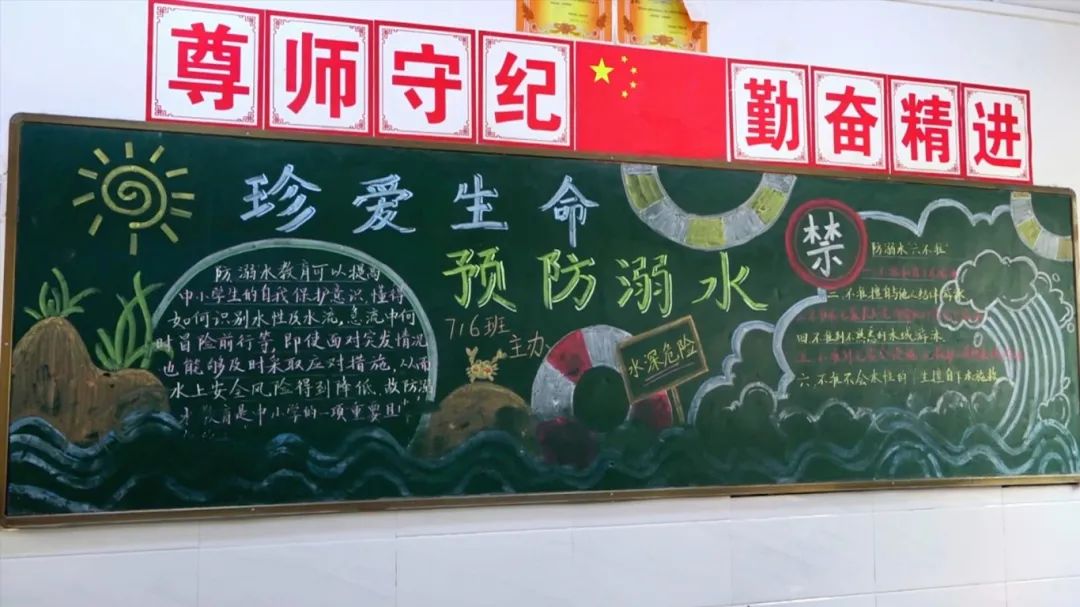 尊师守纪 勤奋精进
珍爱生命
预防溺水
716班
主办
防溺水教育可以提高
中小学生的自我保护意识,懂得
如何识别水性及水流,急流中何
时冒险前行等,即使面对突发情况
也能够及时采取应对措施,从而
水上安全风险得到降低,故防溺
水教育是中小学的一项重要且
水深危险
禁
防溺水"六不准"
二.不准擅自与他人结伴游泳
四不准到不熟悉的水域游泳
六.不准不会水性的学生擅自下水施救